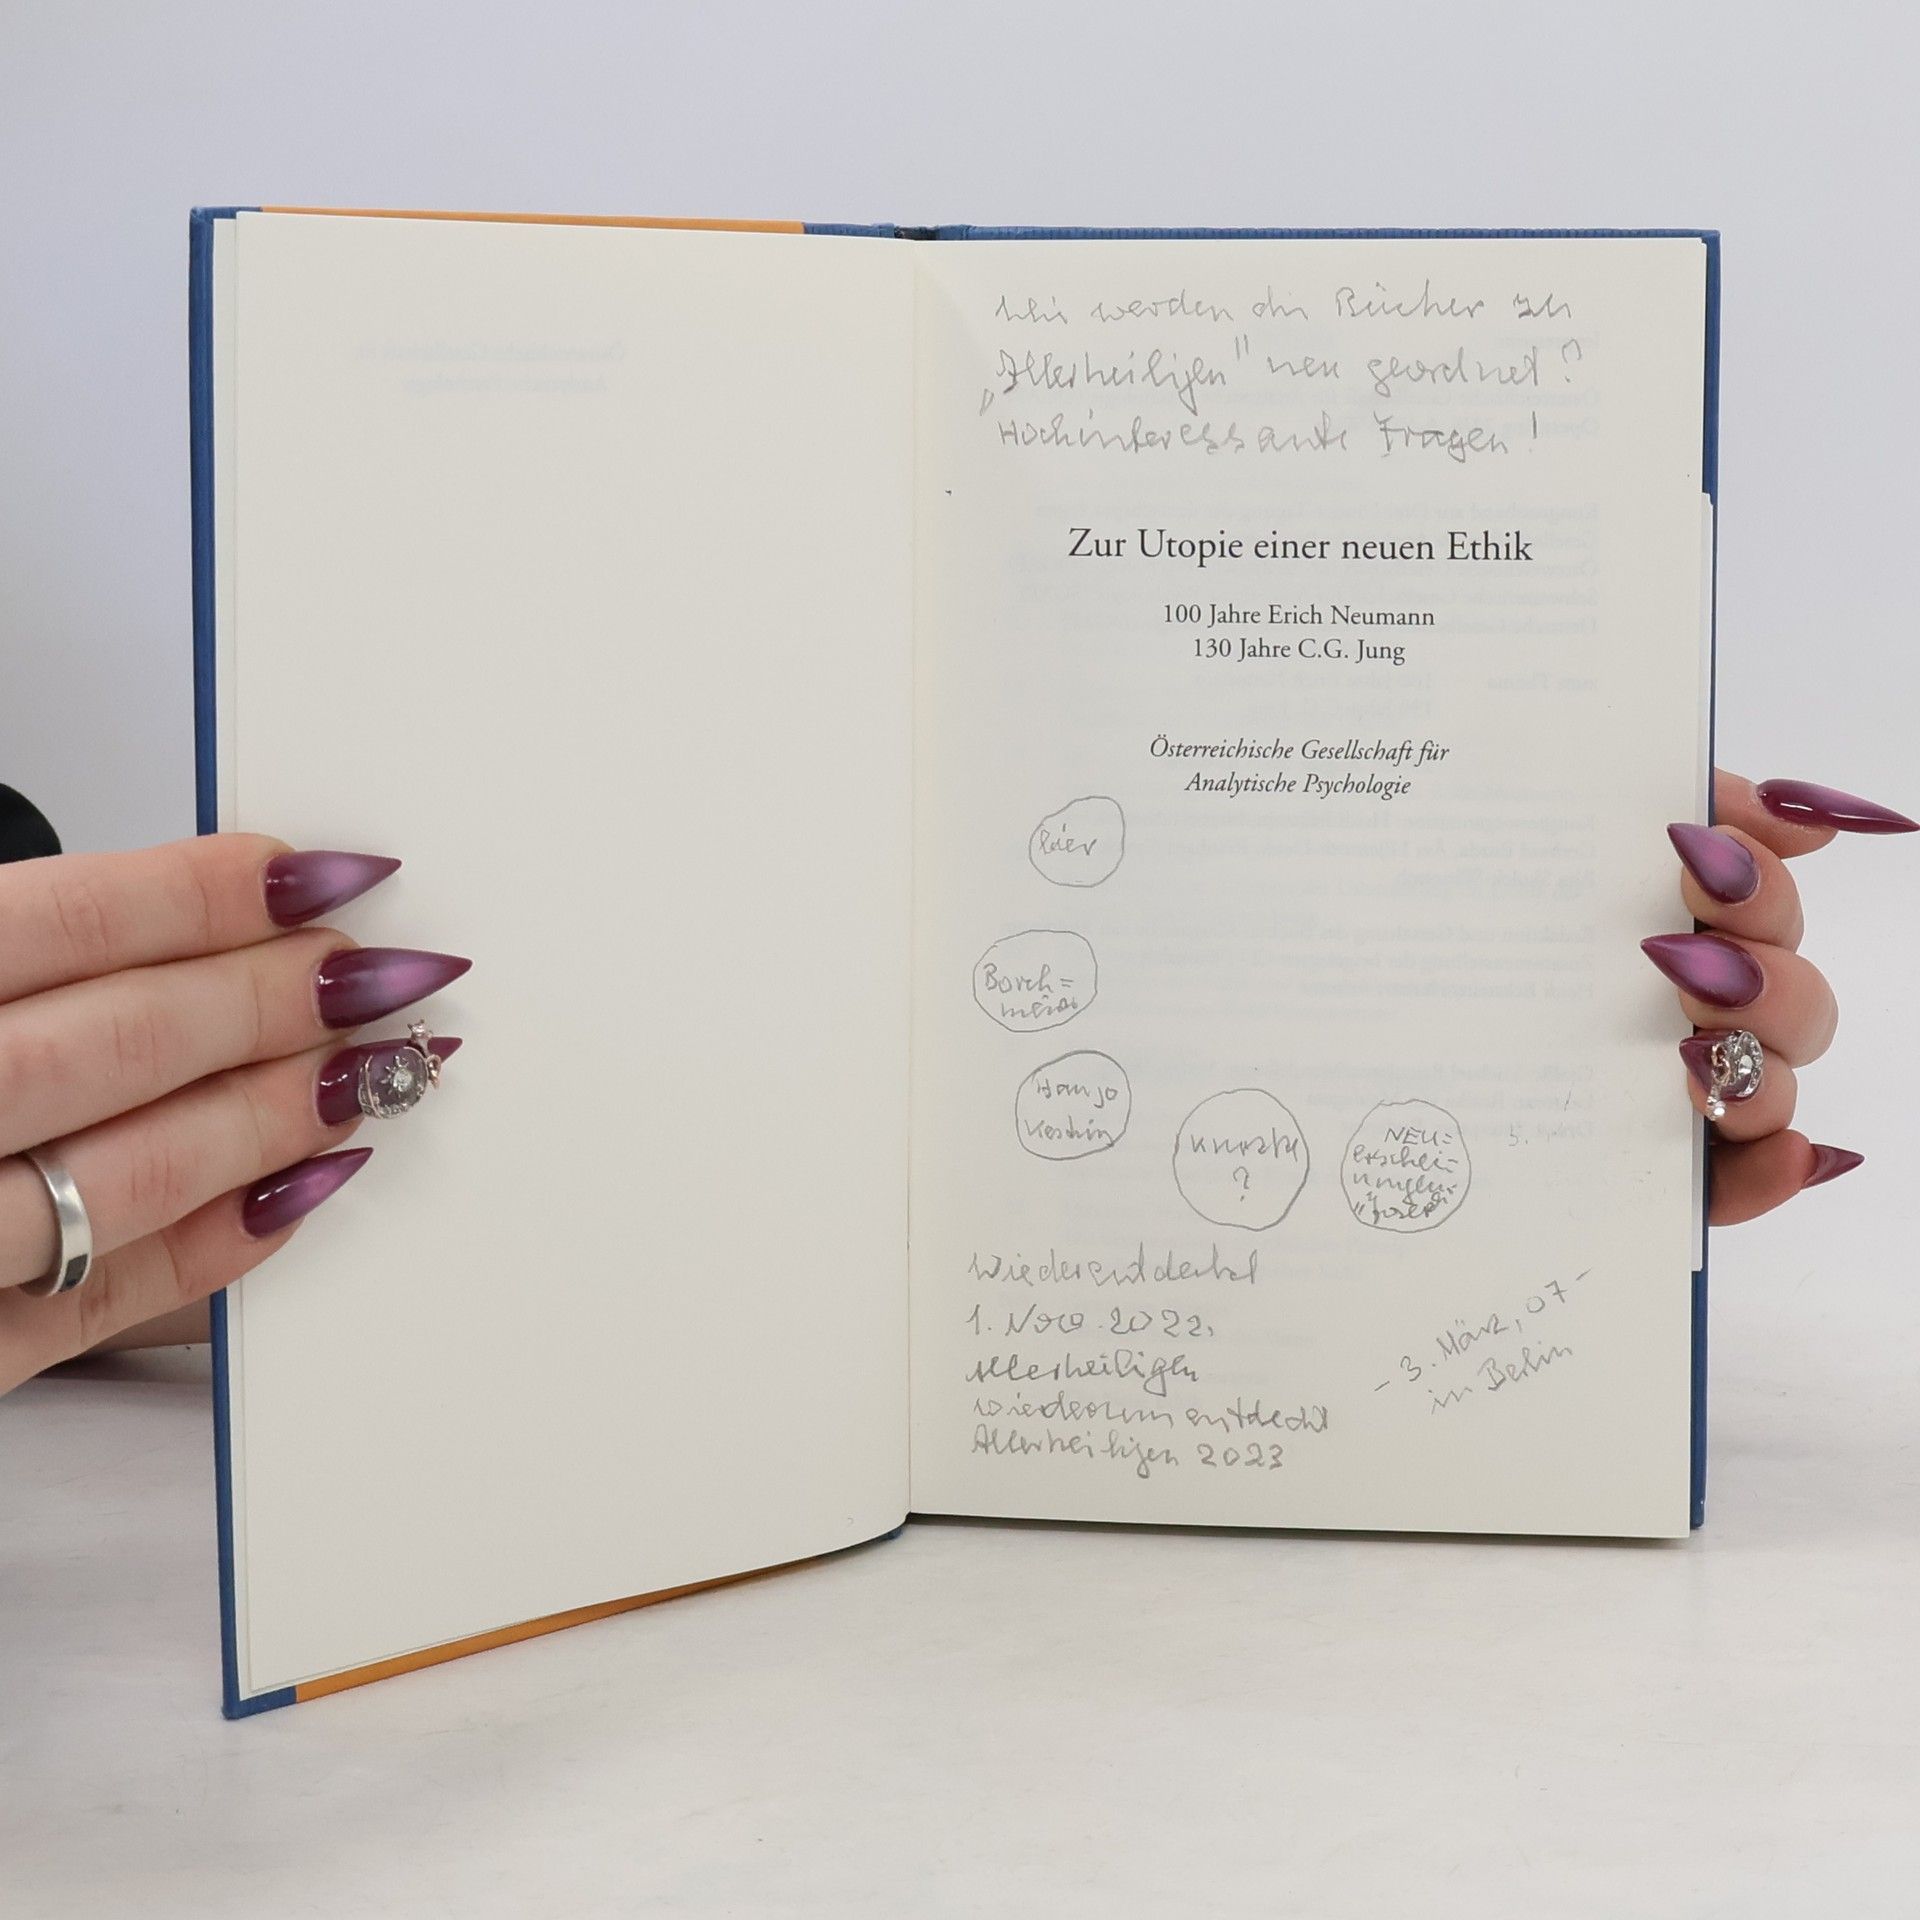 Wie werden die Bücher zu
„Allerheiligen" neu geordnet?
Hochinteressante Fragen!
Zur Utopie einer neuen Ethik
100 Jahre Erich Neumann
130 Jahre C.G. Jung
Österreichische Gesellschaft für
Analytische Psychologie
hier
Borch=
Hanjo
Kestin
?
NEU=
erschei=
nungen:
"Josef"
Wiederentdeckt
1. Nov. 2022,
Allerheiligen
wiederum entdeckt
Allerheiligen 2023
- 3. März, 07 -
in Berlin